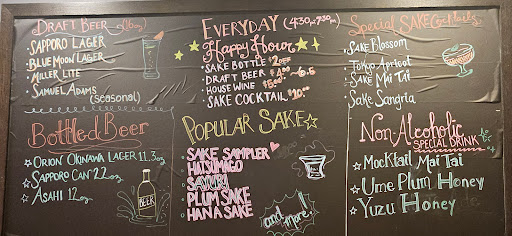 DRAFT BEER (16oz)
SAPPORO LAGER
BLUE MOON LAGER
MILLER LITE
SAMUEL ADAMS
(seasonal)
EVERYDAY (4:30pm-7:30pm)
Happy Hour
SAKE BOTTLE $2 OFF
DRAFT BEER $4.00~6.5
HOUSE WINE $5.00
SAKE COCKTAIL $10.00
Special SAKE Cocktails
SAKE Blossom
Tokyo Apricot
SAKE Mai Tai
Sake Sangria
Bottled Beer
ORION OKINAWA LAGER 11.3oz
SAPPORO CAN 22oz
ASAHI 12oz
BEER
POPULAR SAKE
SAKE SAMPLER
HATSUMAGO
SAYURI
PLUM SAKE
HANA SAKE
and more!
Non-Alcoholic
SPECIAL DRINK
Mocktail Mai Tai
Ume Plum Honey
Yuzu Honey